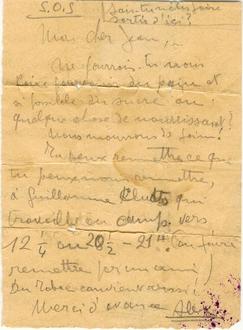 S.O.S
Peux-tu me faire
sortir d'ici?
Mon cher Jean,
Ne pourrais-tu nous
faire parvenir du pain et
si possible du sucre ou
quelque chose de nourrissant?
Nous mourrons de faim!
Tu peux remettre ce que
tu peux nous remettre,
à Guillaume qui
travaille au camp vers
12 1/4 ou 20 1/2 - 21h (ou faire
remettre par un ami)
Du tabac aussi!
Merci d'avance